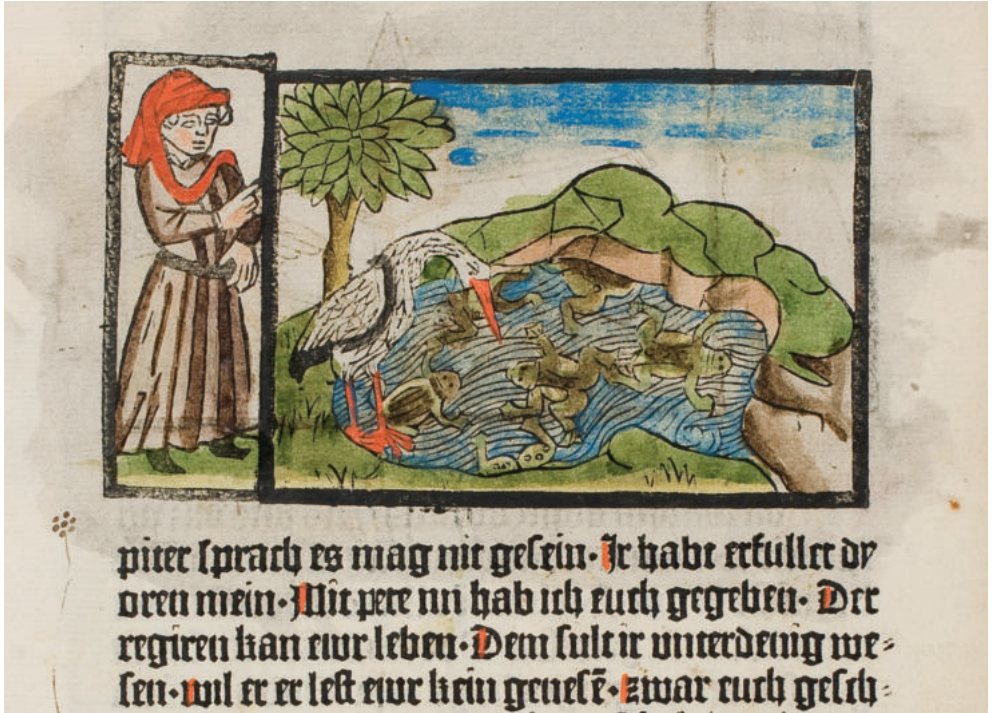 piter sprach es mag nit gesein· Ir habt erfullet dy
oren mein· Mit pete nu hab ich euch gegeben· Der
regiren kan ewr leben· Dem sult ir unterdenig we⸗
sen· wil er er lest ewr kein genesē· zwar euch gesch⸗